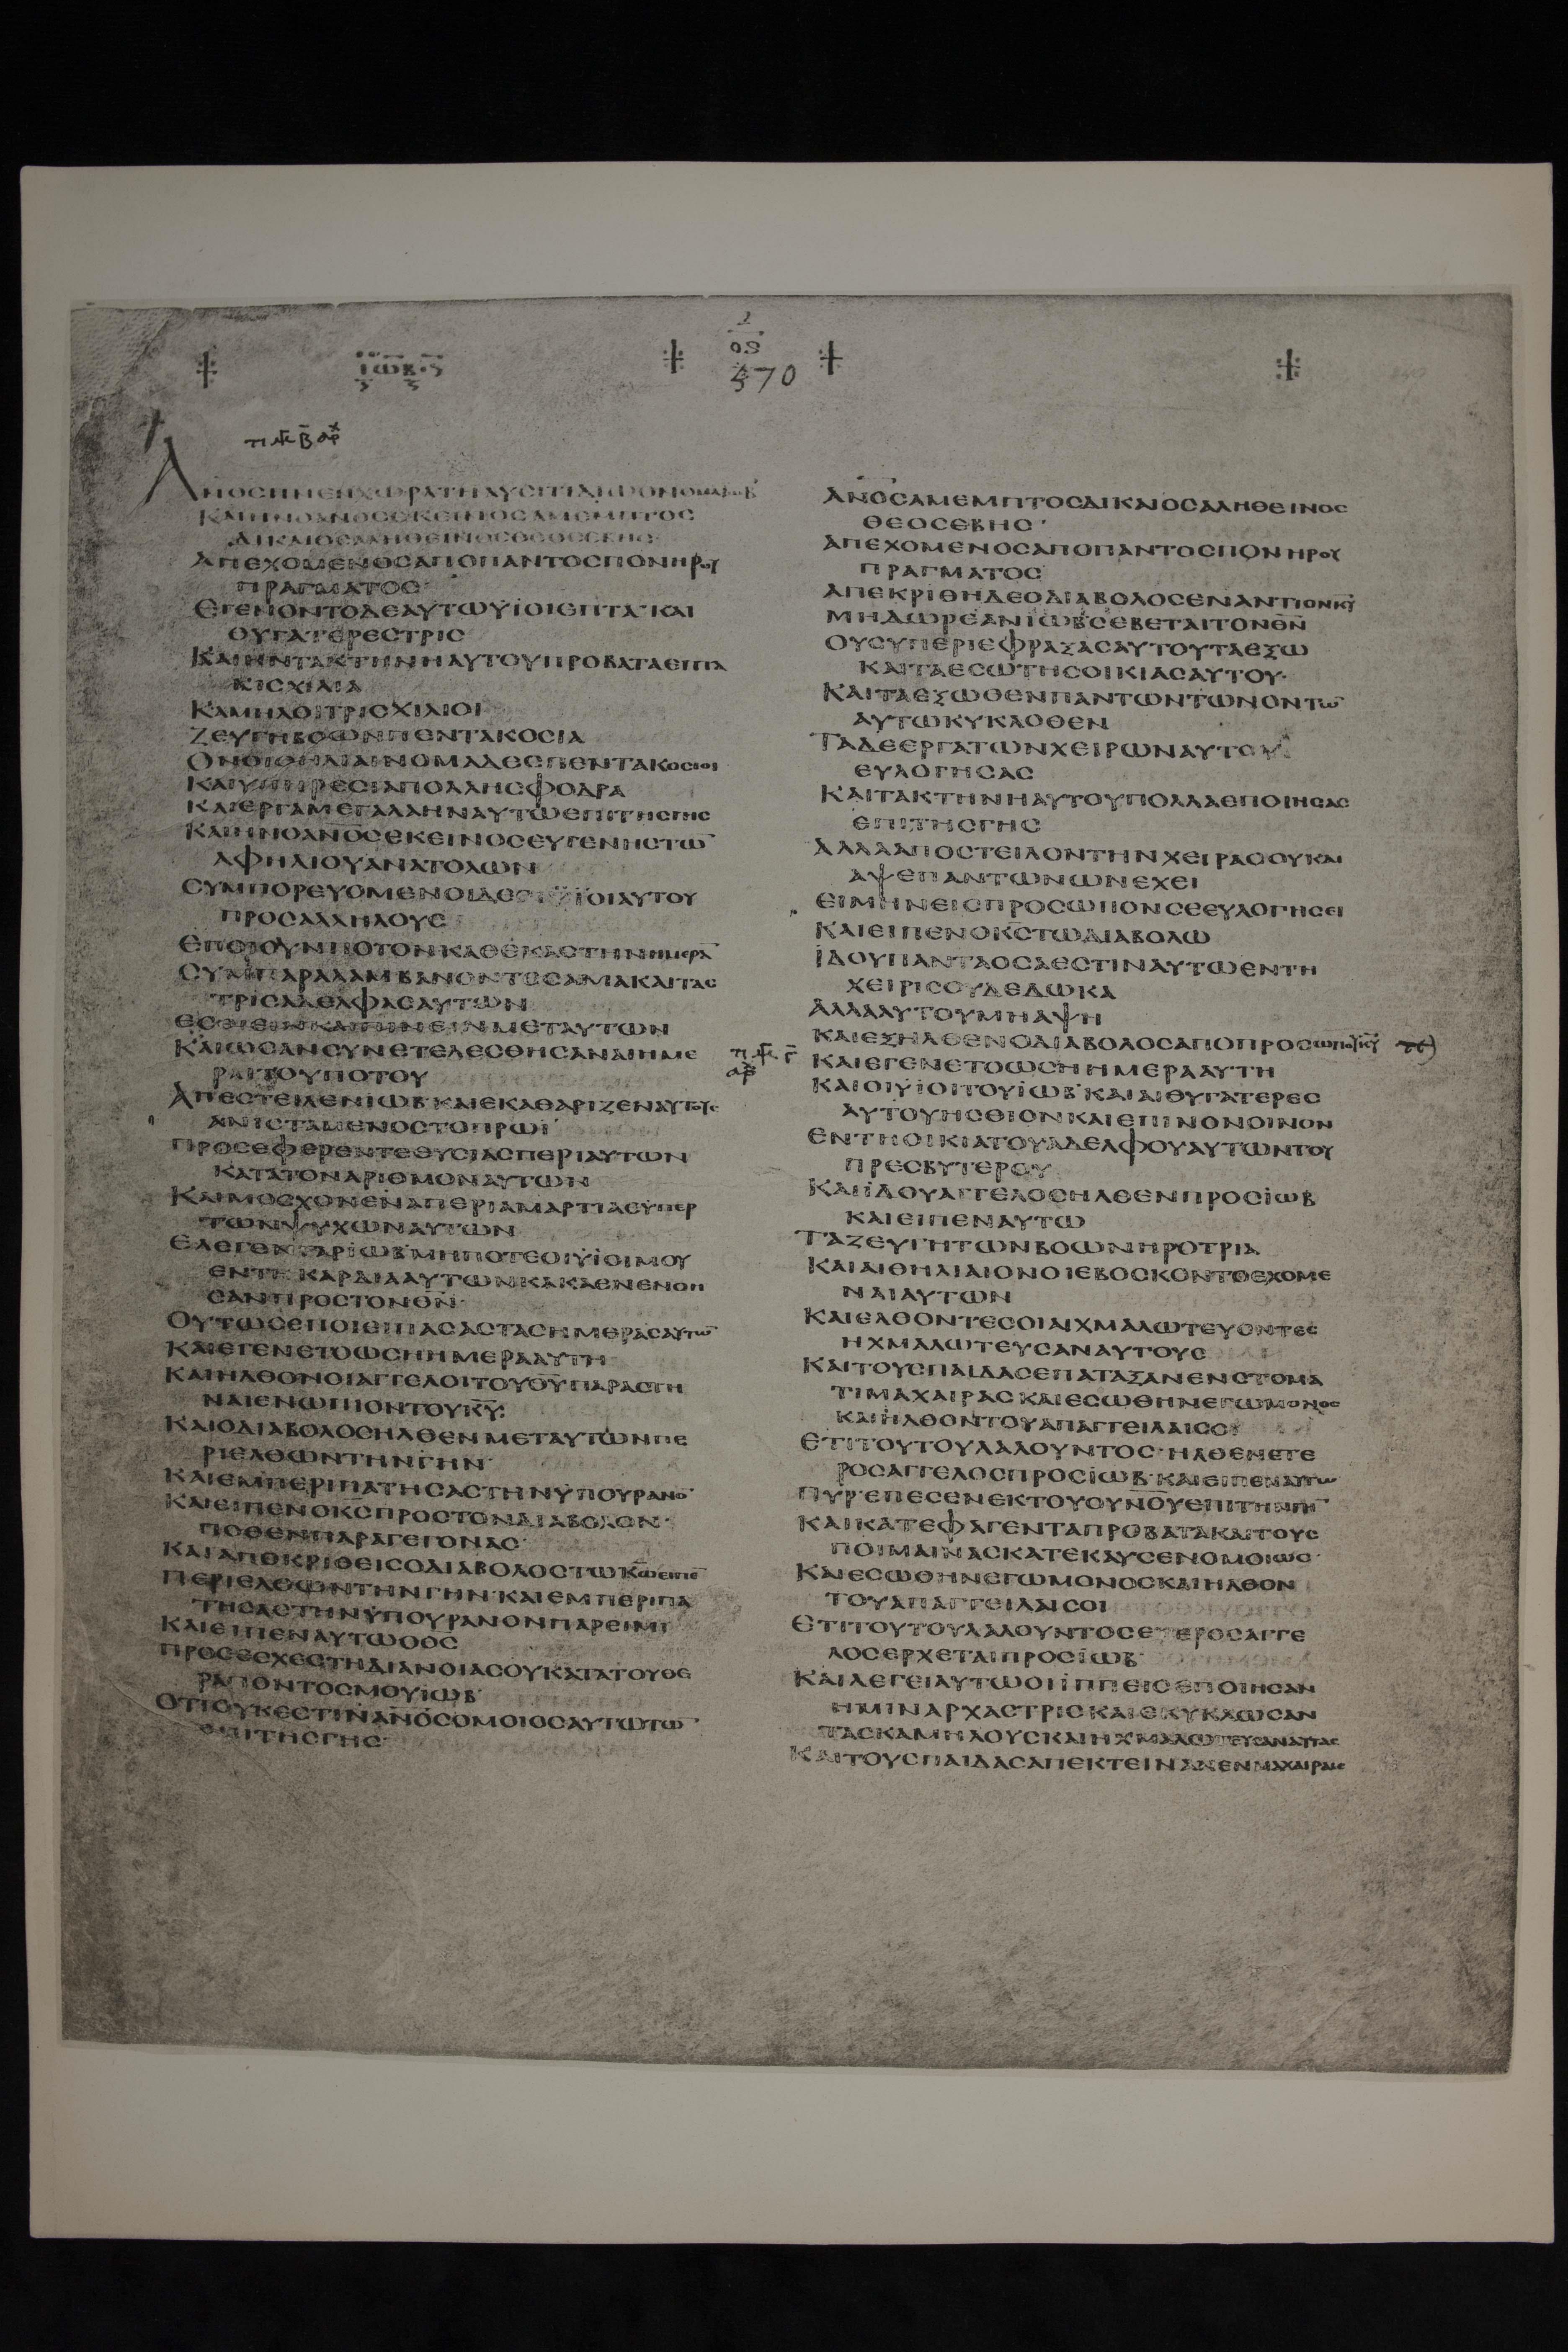 ϊωβ
470
ΚΑΙΗΝΟΑΝΟΣΕΚΕΙΝΟΣΑΜΕΜΠΤΟΣ
ΔΙΚΑΙΟΣΑΛΗΘΕΙΝΟΣΘΕΟΣΕΒΗΣ
ΑΠΕΧΟΜΕΝΟΣΑΠΟΠΑΝΤΟΣΠΟΝΗΡΟΥ
ΠΡΑΓΜΑΤΟΣ
ΕΓΕΝΟΝΤΟΔΕΑΥΤΩΫΙΟΙΕΠΤΑΚΑΙ
ΘΥΓΑΤΕΡΕΣΤΡΙΣ
ΚΑΙΗΝΤΑΚΤΗΝΗΑΥΤΟΥΠΡΟΒΑΤΑΕΠΤΑ
ΚΙΣΧΙΛΙΑ
ΚΑΜΗΛΟΙΤΡΙΣΧΙΛΙΟΙ
ΖΕΥΓΗΒΟΩΝΠΕΝΤΑΚΟΣΙΑ
ΟΝΟΙΘΗΛΙΑΙΝΟΜΑΔΕΣΠΕΝΤΑΚΟΣΙΟΙ
ΚΑΙΥΠΗΡΕΣΙΑΠΟΛΛΗΣΦΟΔΡΑ
ΚΑΙΕΡΓΑΜΕΓΑΛΑΗΝΑΥΤΩΕΠΙΤΗΣΓΗΣ
ΚΑΙΗΝΟΑΝΟΣΕΚΕΙΝΟΣΕΥΓΕΝΗΣΤΩ̅
ΑΦΗΛΙΟΥΑΝΑΤΟΛΩΝ
ΣΥΜΠΟΡΕΥΟΜΕΝΟΙΔΕΟΙΫΙΟΙΑΥΤΟΥ
ΠΡΟΣΑΛΛΗΛΟΥΣ
ΕΠΟΙΟΥΝΠΟΤΟΝΚΑΘΕΚΑΣΤΗΝΗΜΕΡΑ̅
ΣΥΜΠΑΡΑΛΑΜΒΑΝΟΝΤΕΣΑΜΑΚΑΙΤΑΣ
ΤΡΙΣΑΔΕΛΦΑΣΑΥΤΩΝ
ΕΣΘΙΕΙΝΚΑΙΠΙΝΕΙΝΜΕΤΑΥΤΩΝ
ΚΑΙΩΣΑΝΣΥΝΕΤΕΛΕΣΘΗΣΑΝΑΙΗΜΕ
ΡΑΙΤΟΥΠΟΤΟΥ
ΑΠΕΣΤΕΙΛΕΝΙΩΒΚΑΙΕΚΑΘΑΡΙΖΕΝΑΥΤΟΥΣ
ΑΝΙΣΤΑΜΕΝΟΣΤΟΠΡΩΙ
ΠΡΟΣΕΦΕΡΕΝΤΕΘΥΣΙΑΣΠΕΡΙΑΥΤΩΝ
ΚΑΤΑΤΟΝΑΡΙΘΜΟΝΑΥΤΩΝ
ΚΑΙΜΟΣΧΟΝΕΝΑΠΕΡΙΑΜΑΡΤΙΑΣΫΠΕΡ
ΤΩΝΨΥΧΩΝΑΥΤΩΝ
ΕΛΕΓΕΝΓΑΡΪΩΒΜΗΠΟΤΕΟΙΫΙΟΙΜΟΥ
ΕΝΤΗΚΑΡΔΙΑΑΥΤΩΝΚΑΚΑΕΝΕΝΟΗ
ΣΑΝΠΡΟΣΤΟΝΘΝ̅
ΟΥΤΩΣΕΠΟΙΕΙΠΑΣΑΣΤΑΣΗΜΕΡΑΣΑΥΤΩ̅
ΚΑΙΕΓΕΝΕΤΟΩΣΗΗΜΕΡΑΑΥΤΗ
ΚΑΙΗΛΘΟΝΟΙΑΓΓΕΛΟΙΤΟΥΘΥ̅ΠΑΡΑΣΤΗ
ΝΑΙΕΝΩΠΙΟΝΤΟΥΚΥ̅
ΚΑΙΟΔΙΑΒΟΛΟΣΗΛΘΕΝΜΕΤΑΥΤΩΝΠΕ
ΡΙΕΛΘΩΝΤΗΝΓΗΝ
ΚΑΙΕΜΠΕΡΙΠΑΤΗΣΑΣΤΗΝΫΠΟΥΡΑΝΟ̅
ΚΑΙΕΙΠΕΝΟΚΣ̅ΠΡΟΣΤΟΝΔΙΑΒΟΛΟΝ
ΠΟΘΕΝΠΑΡΑΓΕΓΟΝΑΣ
ΚΑΙΑΠΟΚΡΙΘΕΙΣΟΔΙΑΒΟΛΟΣΤΩΚΩ̅ΕΙΠΕ̅
ΠΕΡΙΕΛΘΩΝΤΗΝΓΗΝΚΑΙΕΜΠΕΡΙΠΑ
ΤΗΣΑΣΤΗΝΫΠΟΥΡΑΝΟΝΠΑΡΕΙΜΙ
ΚΑΙΕΙΠΕΝΑΥΤΩΟΘΣ̅
ΠΡΟΣΕΣΧΕΣΤΗΔΙΑΝΟΙΑΣΟΥΚΑΤΑΤΟΥΘΕ
ΡΑΠΟΝΤΟΣΜΟΥΪΩΒ
ΟΤΙΟΥΚΕΣΤΙΝΑΝΟΣΟΜΟΙΟΣΑΥΤΩΤΩ̅
ΕΠΙΤΗΣΓΗΣ
ΑΝΟΣΑΜΕΜΠΤΟΣΔΙΚΑΙΟΣΑΛΗΘΕΙΝΟΣ
ΘΕΟΣΕΒΗΣ
ΑΠΕΧΟΜΕΝΟΣΑΠΟΠΑΝΤΟΣΠΟΝΗΡΟΥ
ΠΡΑΓΜΑΤΟΣ
ΑΠΕΚΡΙΘΗΔΕΟΔΙΑΒΟΛΟΣΕΝΑΝΤΙΟΝΚΥ̅
ΜΗΔΩΡΕΑΝΪΩΒΣΕΒΕΤΑΙΤΟΝΘΝ̅
ΟΥΣΥΠΕΡΙΕΦΡΑΞΑΣΑΥΤΟΥΤΑΕΞΩ
ΚΑΙΤΑΕΣΩΤΗΣΟΙΚΙΑΣΑΥΤΟΥ
ΚΑΙΤΑΕΞΩΘΕΝΠΑΝΤΩΝΤΩΝΟΝΤΩ̅
ΑΥΤΩΚΥΚΛΟΘΕΝ
ΤΑΔΕΕΡΓΑΤΩΝΧΕΙΡΩΝΑΥΤΟΥ
ΕΥΛΟΓΗΣΑΣ
ΚΑΙΤΑΚΤΗΝΗΑΥΤΟΥΠΟΛΛΑΕΠΟΙΗΣΑΣ
ΕΠΙΤΗΣΓΗΣ
ΑΛΛΑΑΠΟΣΤΕΙΛΟΝΤΗΝΧΕΙΡΑΣΟΥΚΑΙ
ΑΨΕΠΑΝΤΩΝΩΝΕΧΕΙ
ΕΙΜΗΝΕΙΣΠΡΟΣΩΠΟΝΣΕΕΥΛΟΓΗΣΕΙ
ΚΑΙΕΙΠΕΝΟΚΣ̅ΤΩΔΙΑΒΟΛΩ
ΪΔΟΥΠΑΝΤΑΟΣΑΕΣΤΙΝΑΥΤΩΕΝΤΗ
ΧΕΙΡΙΣΟΥΔΕΔΩΚΑ
ΑΛΛΑΑΥΤΟΥΜΗΑΨΗ
ΚΑΙΕΞΗΛΘΕΝΟΔΙΑΒΟΛΟΣΑΠΟΠΡΟΣΩΠΟΥΚΥ̅
ΚΑΙΕΓΕΝΕΤΟΩΣΗΗΜΕΡΑΑΥΤΗ
ΚΑΙΟΙΫΙΟΙΤΟΥΪΩΒΚΑΙΑΙΘΥΓΑΤΕΡΕΣ
ΑΥΤΟΥΗΣΘΙΟΝΚΑΙΕΠΙΝΟΝΟΙΝΟΝ
ΕΝΤΗΟΙΚΙΑΤΟΥΑΔΕΛΦΟΥΑΥΤΩΝΤΟΥ
ΠΡΕΣΒΥΤΕΡΟΥ
ΚΑΙΪΔΟΥΑΓΓΕΛΟΣΗΛΘΕΝΠΡΟΣΪΩΒ
ΚΑΙΕΙΠΕΝΑΥΤΩ
ΤΑΖΕΥΓΗΤΩΝΒΟΩΝΗΡΟΤΡΙΑ
ΚΑΙΑΙΘΗΛΙΑΙΟΝΟΙΕΒΟΣΚΟΝΤΟΕΧΟΜΕ
ΝΑΙΑΥΤΩΝ
ΚΑΙΕΛΘΟΝΤΕΣΟΙΑΙΧΜΑΛΩΤΕΥΟΝΤΕΣ
ΗΧΜΑΛΩΤΕΥΣΑΝΑΥΤΟΥΣ
ΚΑΙΤΟΥΣΠΑΙΔΑΣΕΠΑΤΑΞΑΝΕΝΣΤΟΜΑ
ΤΙΜΑΧΑΙΡΑΣΚΑΙΕΣΩΘΗΝΕΓΩΜΟΝΟΣ
ΚΑΙΗΛΘΟΝΤΟΥΑΠΑΓΓΕΙΛΑΙΣΟΙ
ΕΤΙΤΟΥΤΟΥΛΑΛΟΥΝΤΟΣΗΛΘΕΝΕΤΕ
ΡΟΣΑΓΓΕΛΟΣΠΡΟΣΪΩΒΚΑΙΕΙΠΕΝΑΥΤΩ
ΠΥΡΕΠΕΣΕΝΕΚΤΟΥΟΥΝΟΥ̅ΕΠΙΤΗΝΓΗ̅
ΚΑΙΚΑΤΕΦΑΓΕΝΤΑΠΡΟΒΑΤΑΚΑΙΤΟΥΣ
ΠΟΙΜΑΙΝΑΣΚΑΤΕΚΑΥΣΕΝΟΜΟΙΩΣ
ΚΑΙΕΣΩΘΗΝΕΓΩΜΟΝΟΣΚΑΙΗΛΘΟΝ
ΤΟΥΑΠΑΓΓΕΙΛΑΙΣΟΙ
ΕΤΙΤΟΥΤΟΥΛΑΛΟΥΝΤΟΣΕΤΕΡΟΣΑΓΓΕ
ΛΟΣΕΡΧΕΤΑΙΠΡΟΣΪΩΒ
ΚΑΙΛΕΓΕΙΑΥΤΩΟΙΪΠΠΕΙΣΕΠΟΙΗΣΑΝ
ΗΜΙΝΑΡΧΑΣΤΡΙΣΚΑΙΕΚΥΚΛΩΣΑΝ
ΤΑΣΚΑΜΗΛΟΥΣΚΑΙΗΧΜΑΛΩΤΕΥΣΑΝΑΥΤΑΣ
ΚΑΙΤΟΥΣΠΑΙΔΑΣΑΠΕΚΤΕΙΝΑΝΕΝΜΑΧΑΙΡΑΙΣ